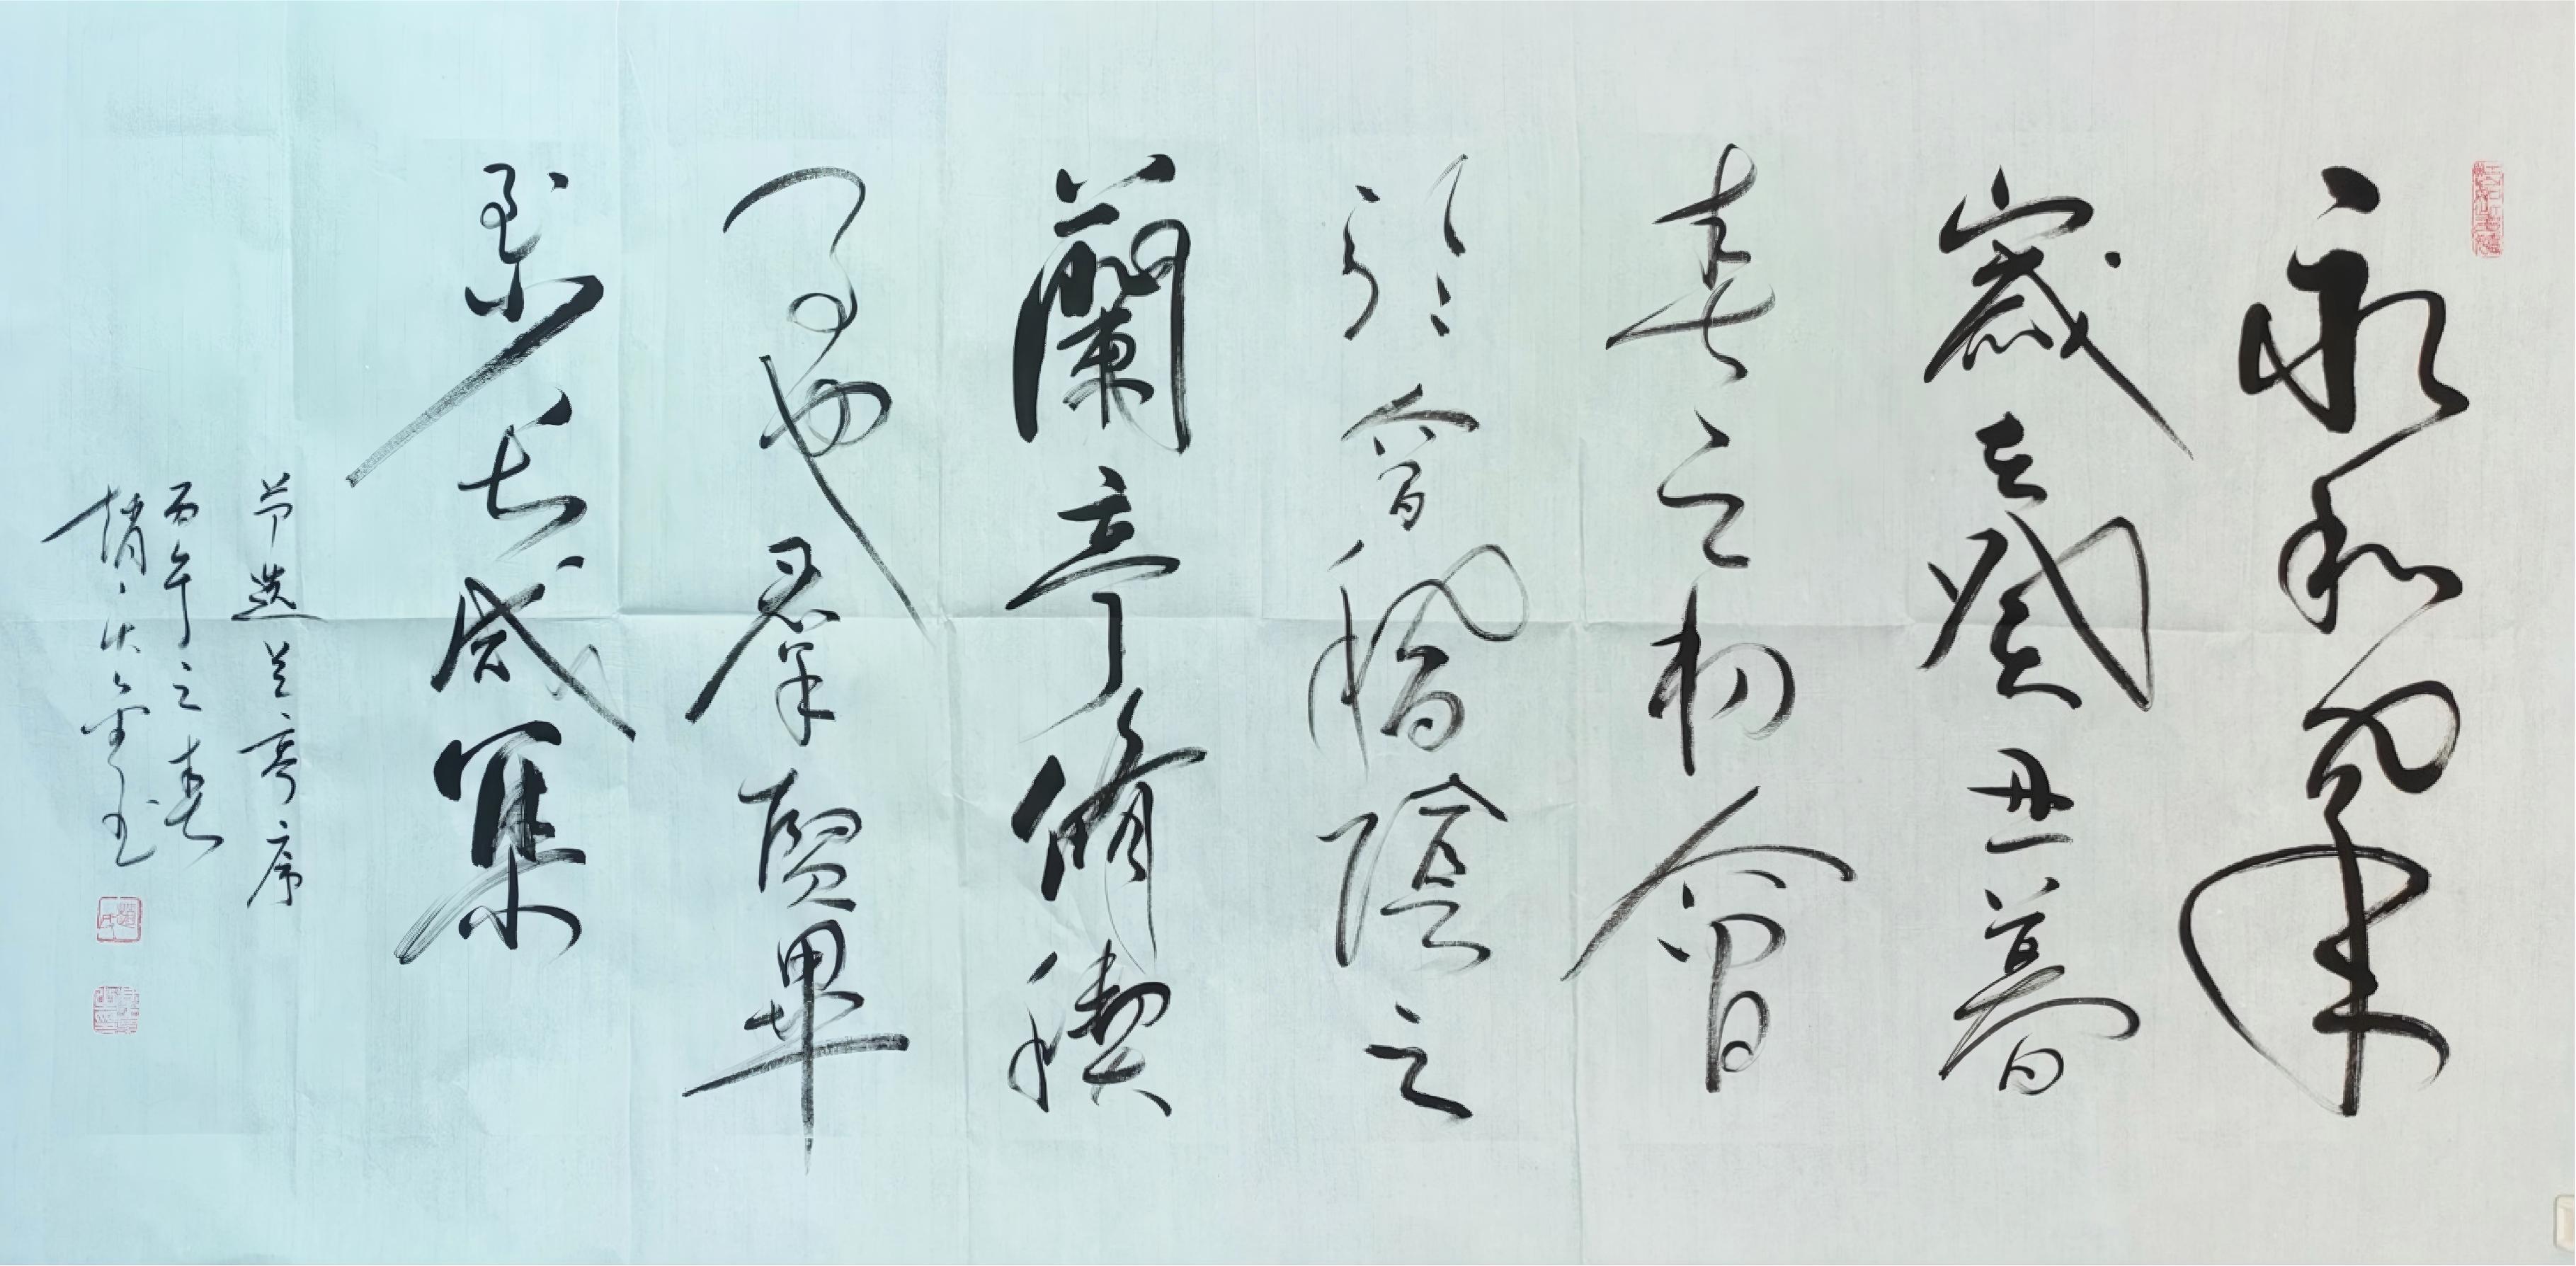 永和九年
歲在癸丑暮
春之初會
於會稽陰之
蘭亭脩禊
事也羣賢畢
至少長咸集
节选兰亭序
丙午之春